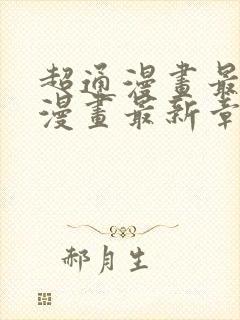 超通漫畫最
漫畫最新章
郝月生